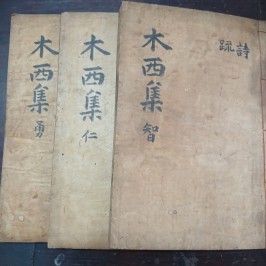 詩
疏
木西集
智
木西集
仁
木西集
勇